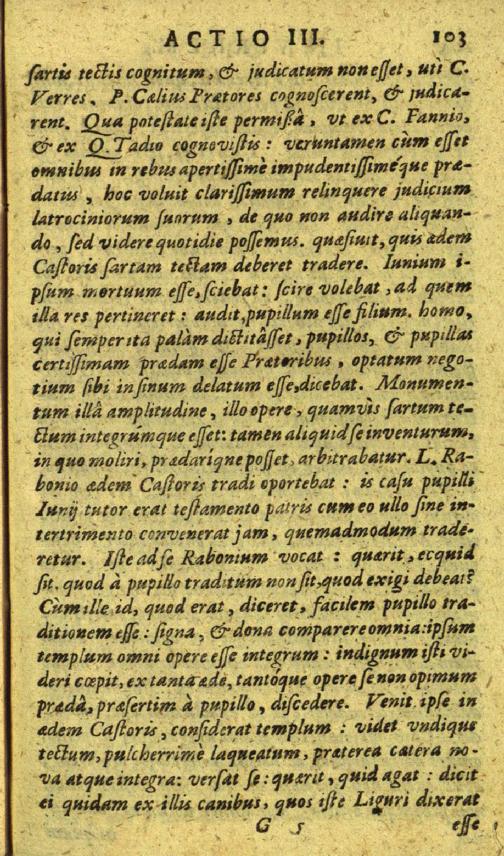 ACTIO III. 103
ſartis tectis cognitum, & judicatum non eſſet, uti C.
Verres. P. Cælius Prætores cognoſcerent, & judica-
rent. Qua poteſtate iſte permiſſâ, vt ex C. Fannio,
& ex Q. Tadio cognoviſtis: veruntamen cùm eſſet
omnibus in rebus apertiſſimè impudentiſſiméque præ-
datus, hoc voluit clariſſimum relinquere judicium
latrociniorum ſuorum, de quo non audire aliquan-
do, ſed videre quotidie poſſemus. quæſiuit, quis ædem
Caſtoris ſartam tectam deberet tradere. Iunium i-
pſum mortuum eſſe, ſciebat: ſcire volebat, ad quem
illa res pertineret: audit, pupillum eſſe filium. homo,
qui ſemper ita palàm dictitâſſet, pupillos, & pupillas
certiſſimam prædam eſſe Prætoribus, optatum nego-
tium ſibi in ſinum delatum eſſe, dicebat. Monumen-
tum illâ amplitudine, illo opere, quamvìs ſartum te-
ctum integrúmque eſſet: tamen aliquid ſe inventurum,
in quo moliri, prædaríque poſſet, arbitrabatur. L. Ra-
bonio ædem Caſtoris tradi oportebat: is caſu pupilli
Iunij tutor erat teſtamento patris cum eo ullo ſine in-
tertrimento convenerat jam, quemadmodum trade-
retur. Iſte ad ſe Rabonium vocat: quærit, ecquid
ſit, quod à pupillo traditum non ſit, quod exigi debeat?
Cùm ille id, quod erat, diceret, facilem pupillo tra-
ditionem eſſe: ſigna, & dona comparere omnia: ipſum
templum omni opere eſſe integrum: indignum iſti vi-
deri cœpit, ex tanta æde, tantóque opere ſe non opimum
prædâ, præſertim à pupillo, diſcedere. Venit ipſe in
ædem Caſtoris, conſiderat templum: videt vndique
tectum, pulcherrimè laqueatum, præterea cætera no-
va atque integra: verſat ſe: quærit, quid agat: dicit
ei quidam ex illis canibus, quos iſte Liguri dixerat
G 5 eſſe